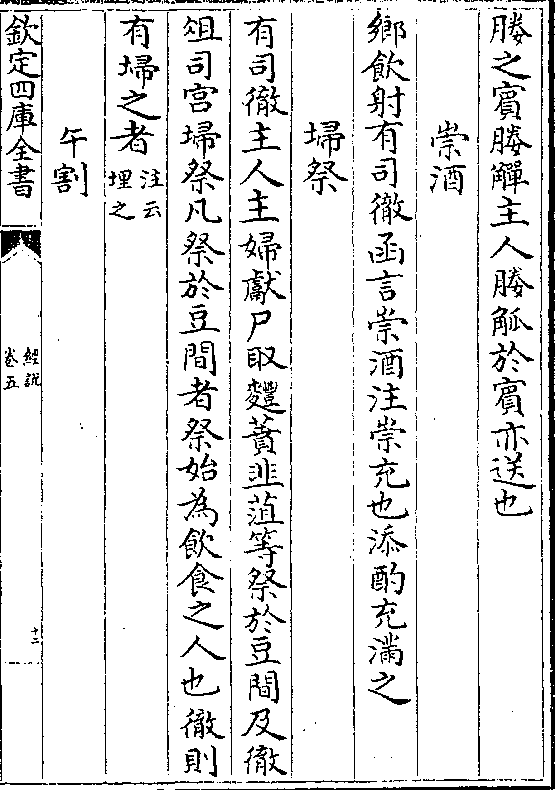 媵之賔媵觶主人媵觚於賔亦送也
崇酒
鄉飲射有司徹函言崇酒注崇充也添酌充滿之
埽祭
有司徹主人主婦獻尸取麷蕡韭菹等祭於豆間及徹
俎司宫埽祭凡祭於豆間者祭始為飲食之人也徹則
有埽之者注云埋之
午割
欽定四庫全書
經説
卷五
十二